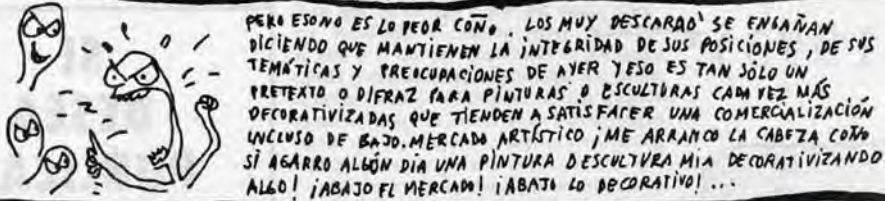 PERO ESO NO ES LO PEOR COÑO. LOS MUY DESCARAO' SE ENGAÑAN
DICIENDO QUE MANTIENEN LA INTEGRIDAD DE SUS POSICIONES, DE SUS
TEMÁTICAS Y PREOCUPACIONES DE AYER Y ESO ES TAN SÓLO UN
PRETEXTO O DIFRAZ PARA PINTURAS O ESCULTURAS CADA VEZ MÁS
DECORATIVIZADAS QUE TIENDEN A SATISFACER UNA COMERCIALIZACIÓN
INCLUSO DE BAJO. MERCADO ARTÍSTICO ¡ME ARRANCO LA CABEZA COÑO
SI AGARRO ALGÚN DIA UNA PINTURA O ESCULTURA MIA DECORATIVIZANDO
ALGO! ¡ABAJO EL MERCADO! ¡ABAJO LO DECORATIVO!...